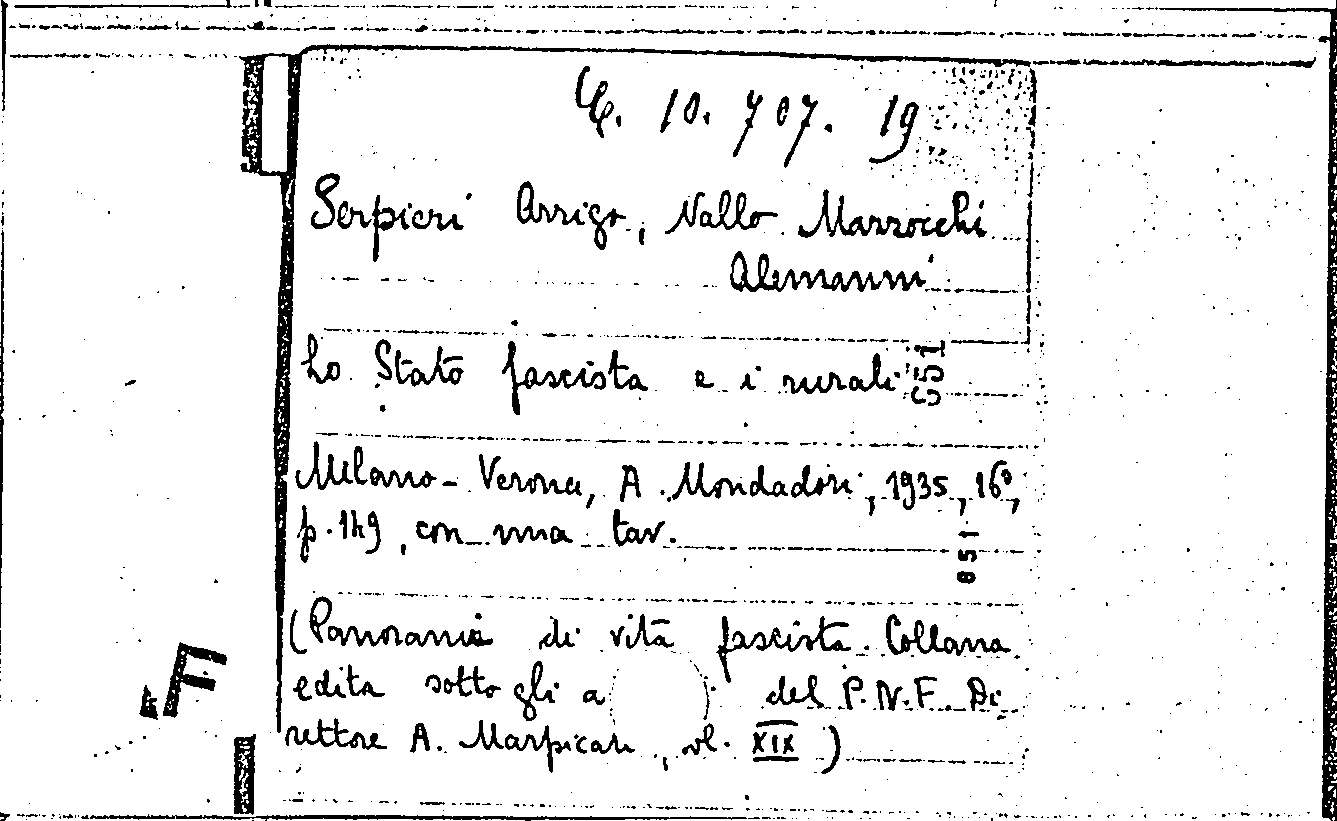 C. 10. 707. 19
Serpieri Arrigo, Nallo Mazzocchi
Alemanni
Lo Stato fascista e i rurali
551
Milano - Verona, A. Mondadori, 1935, 16°,
p. 149, con una tav.
851
(Panorami di vita fascista. Collana
edita sotto gli a del P.N.F. Di
rettore A. Marpicati, vol. XIX)
F